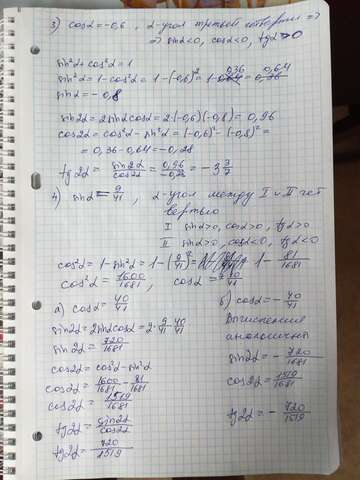 3) cosα = -0,6, α-угол третьей четверти =>
=> sinα<0, cosα<0, tgα>0
sin²α+cos²α=1
sin²α = 1-cos²α = 1-(-0,6)² = 1-0,36 = 0,64
sinα = -0,8
sin2α = 2sinα cosα = 2·(-0,6)·(-0,8) = 0,96
cos2α = cos²α - sin²α = (-0,6)² - (-0,8)² =
= 0,36-0,64 = -0,28
tg2α = sin2α/cos2α = 0,96/-0,28 = -3 3/7
4) sinα = 9/41, α-угол между I и II чет
вертью
I sinα>0, cosα>0, tgα>0
II sinα>0, cosα<0, tgα<0
cos²α = 1-sin²α = 1-(9/41)² = 1 - 81/1681
cos²α = 1600/1681, cosα = 40/41
а) cosα = 40/41
sin2α = 2sinα cosα = 2·9/41·40/41
sin2α = 720/1681
cos2α = cos²α - sin²α
cos2α = 1600/1681 - 81/1681
cos2α = 1519/1681
tg2α = sin2α/cos2α
tg2α = 720/1519
б) cosα = - 40/41
Вычисления
аналогичны
sin2α = - 720/1681
cos2α = 1519/1681
tg2α = - 720/1519